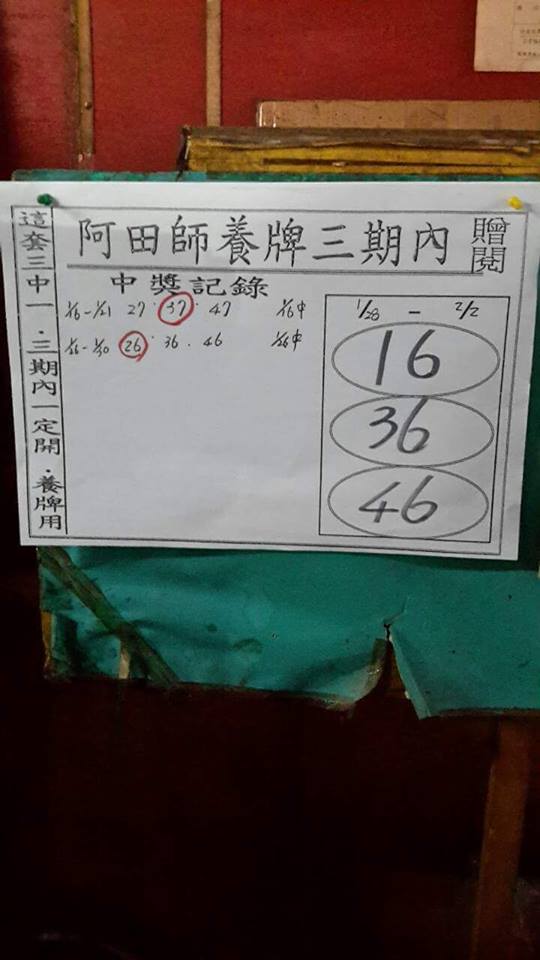 阿田師養牌三期內
贈閱
這套三中一．三期內一定開．養牌用
中獎記錄
1/16-1/21 27·37·47 1/16中
1/26-1/30 26·36.46 1/26中
1/28 - 2/2
16
36
46